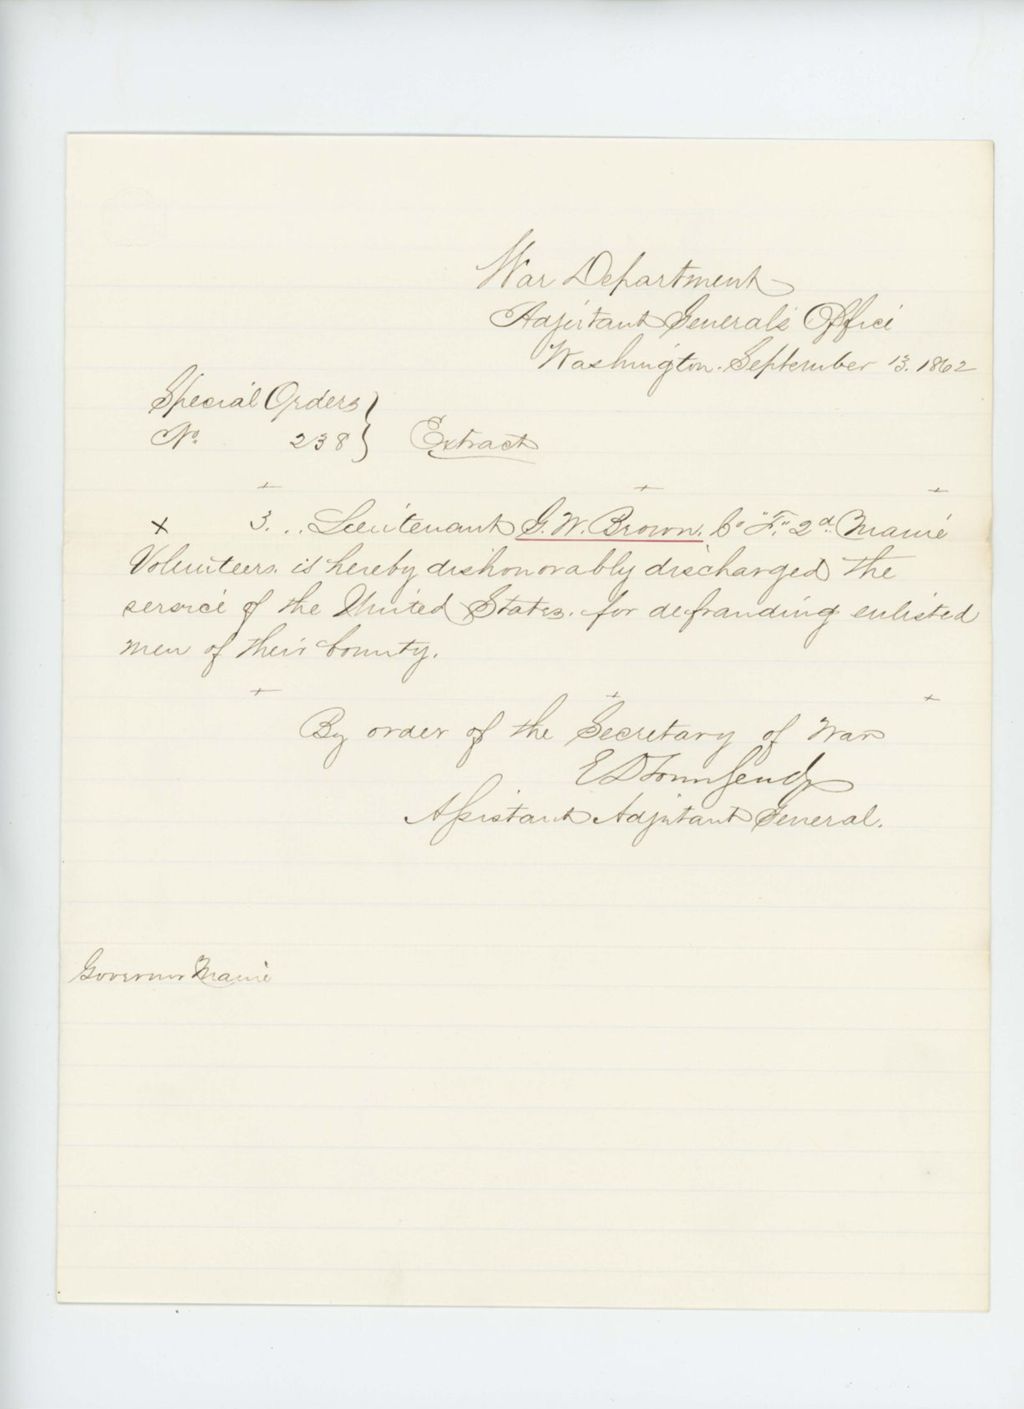 War Department
Adjutant General's Office
Washington. September 13. 1862
Special Orders }
No. 238 } Extract
+ + +
x 3... Lieutenant G. W. Brown, Co "F," 2d. Maine
Volunteers. is hereby dishonorably discharged the
service of the United States. for defrauding enlisted
men of their bounty.
+ + +
By order of the Secretary of War
E D Townsend
Assistant Adjutant General.
Governor Maine